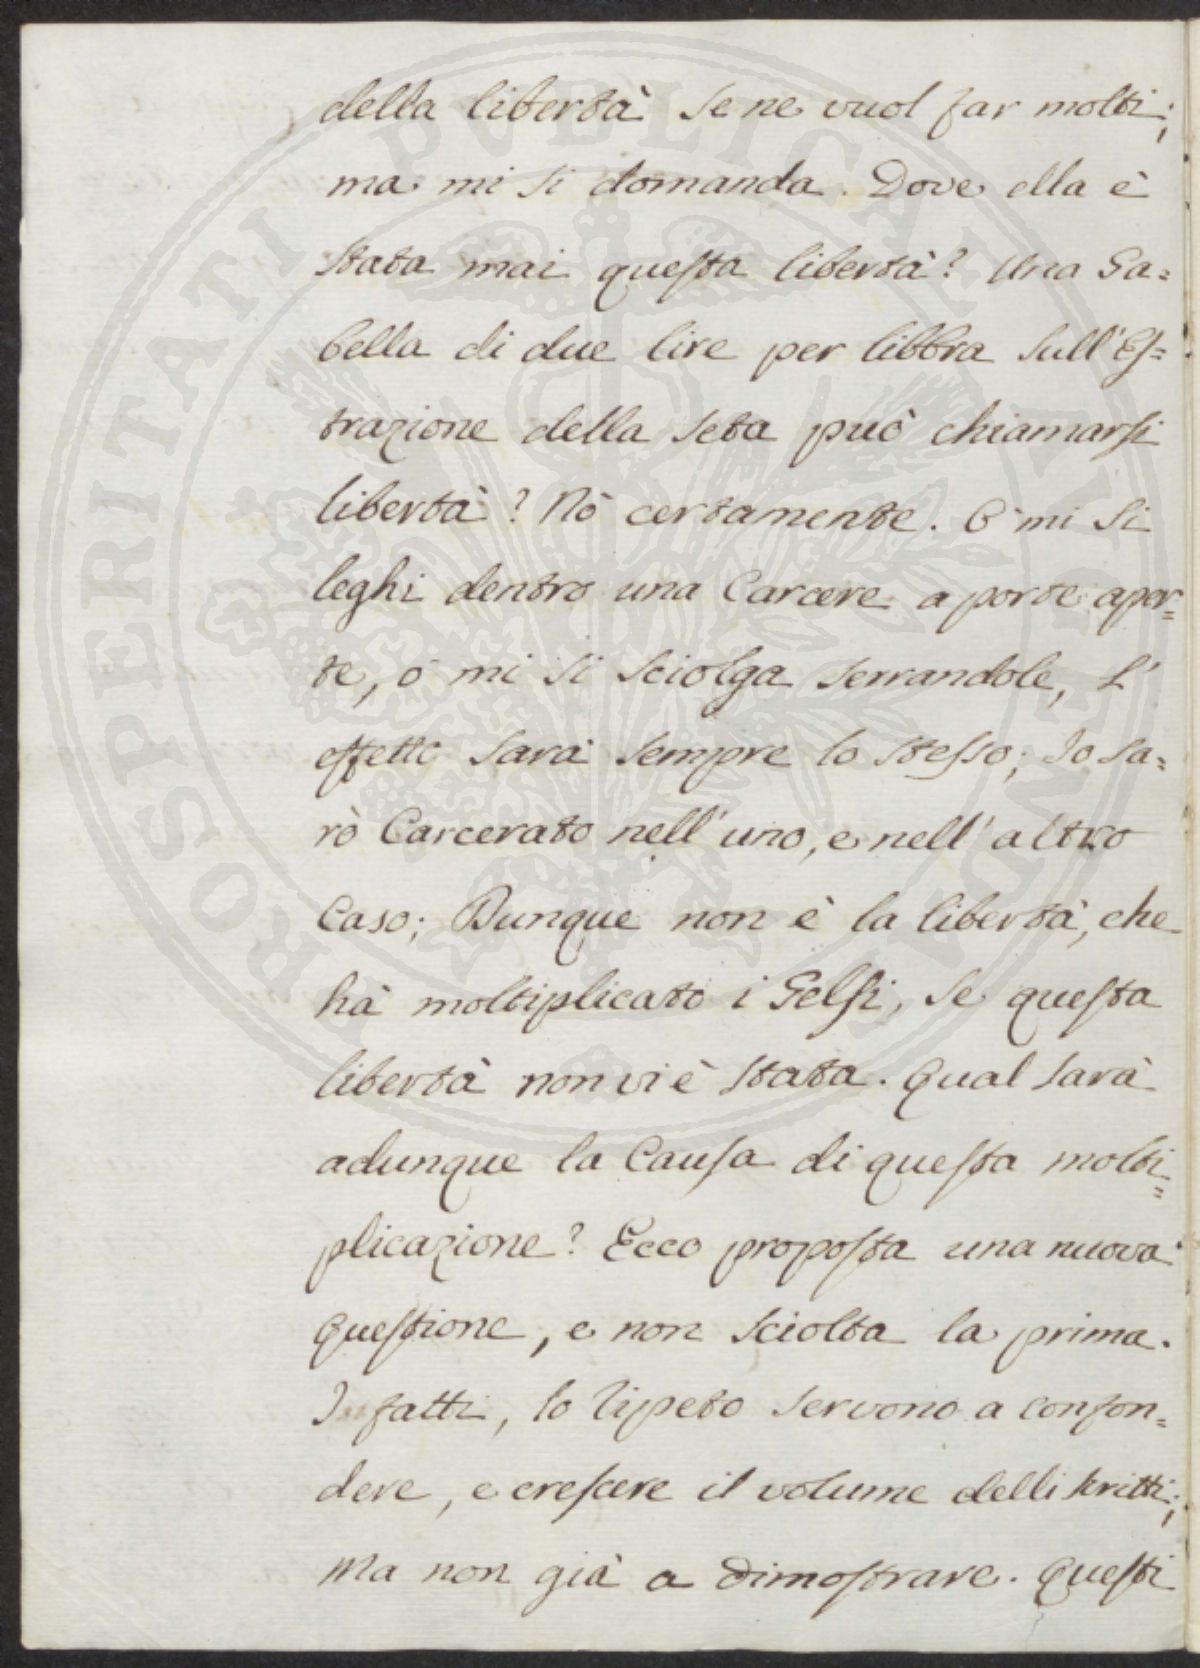 della libertà se ne vuol far molti;
ma mi si domanda. Dove ella è
stata mai questa libertà? Una Ga=
bella di due lire per libbra sull'Es=
trazione della seta può chiamarsi
libertà? Nò certamente. O' mi si
leghi dentro una Carcere a porte aper=
te, ò mi si sciolga serrandole, L'
effetto sarà sempre lo stesso; Io sa=
rò Carcerato nell'uno, e nell'altro
Caso; Dunque non è la libertà, che
hà moltiplicato i Gelsi, se questa
libertà non vi è stata. Qual sarà
adunque la Causa di questa molti=
plicazione? Ecco proposta una nuova
questione, e non sciolta la prima.
I fatti, lo ripeto servono a confon=
dere, e crescere il volume delli scritti;
Ma non già a dimostrare. Questi
PROSPERITATI PUBLICAE AUGENDAE